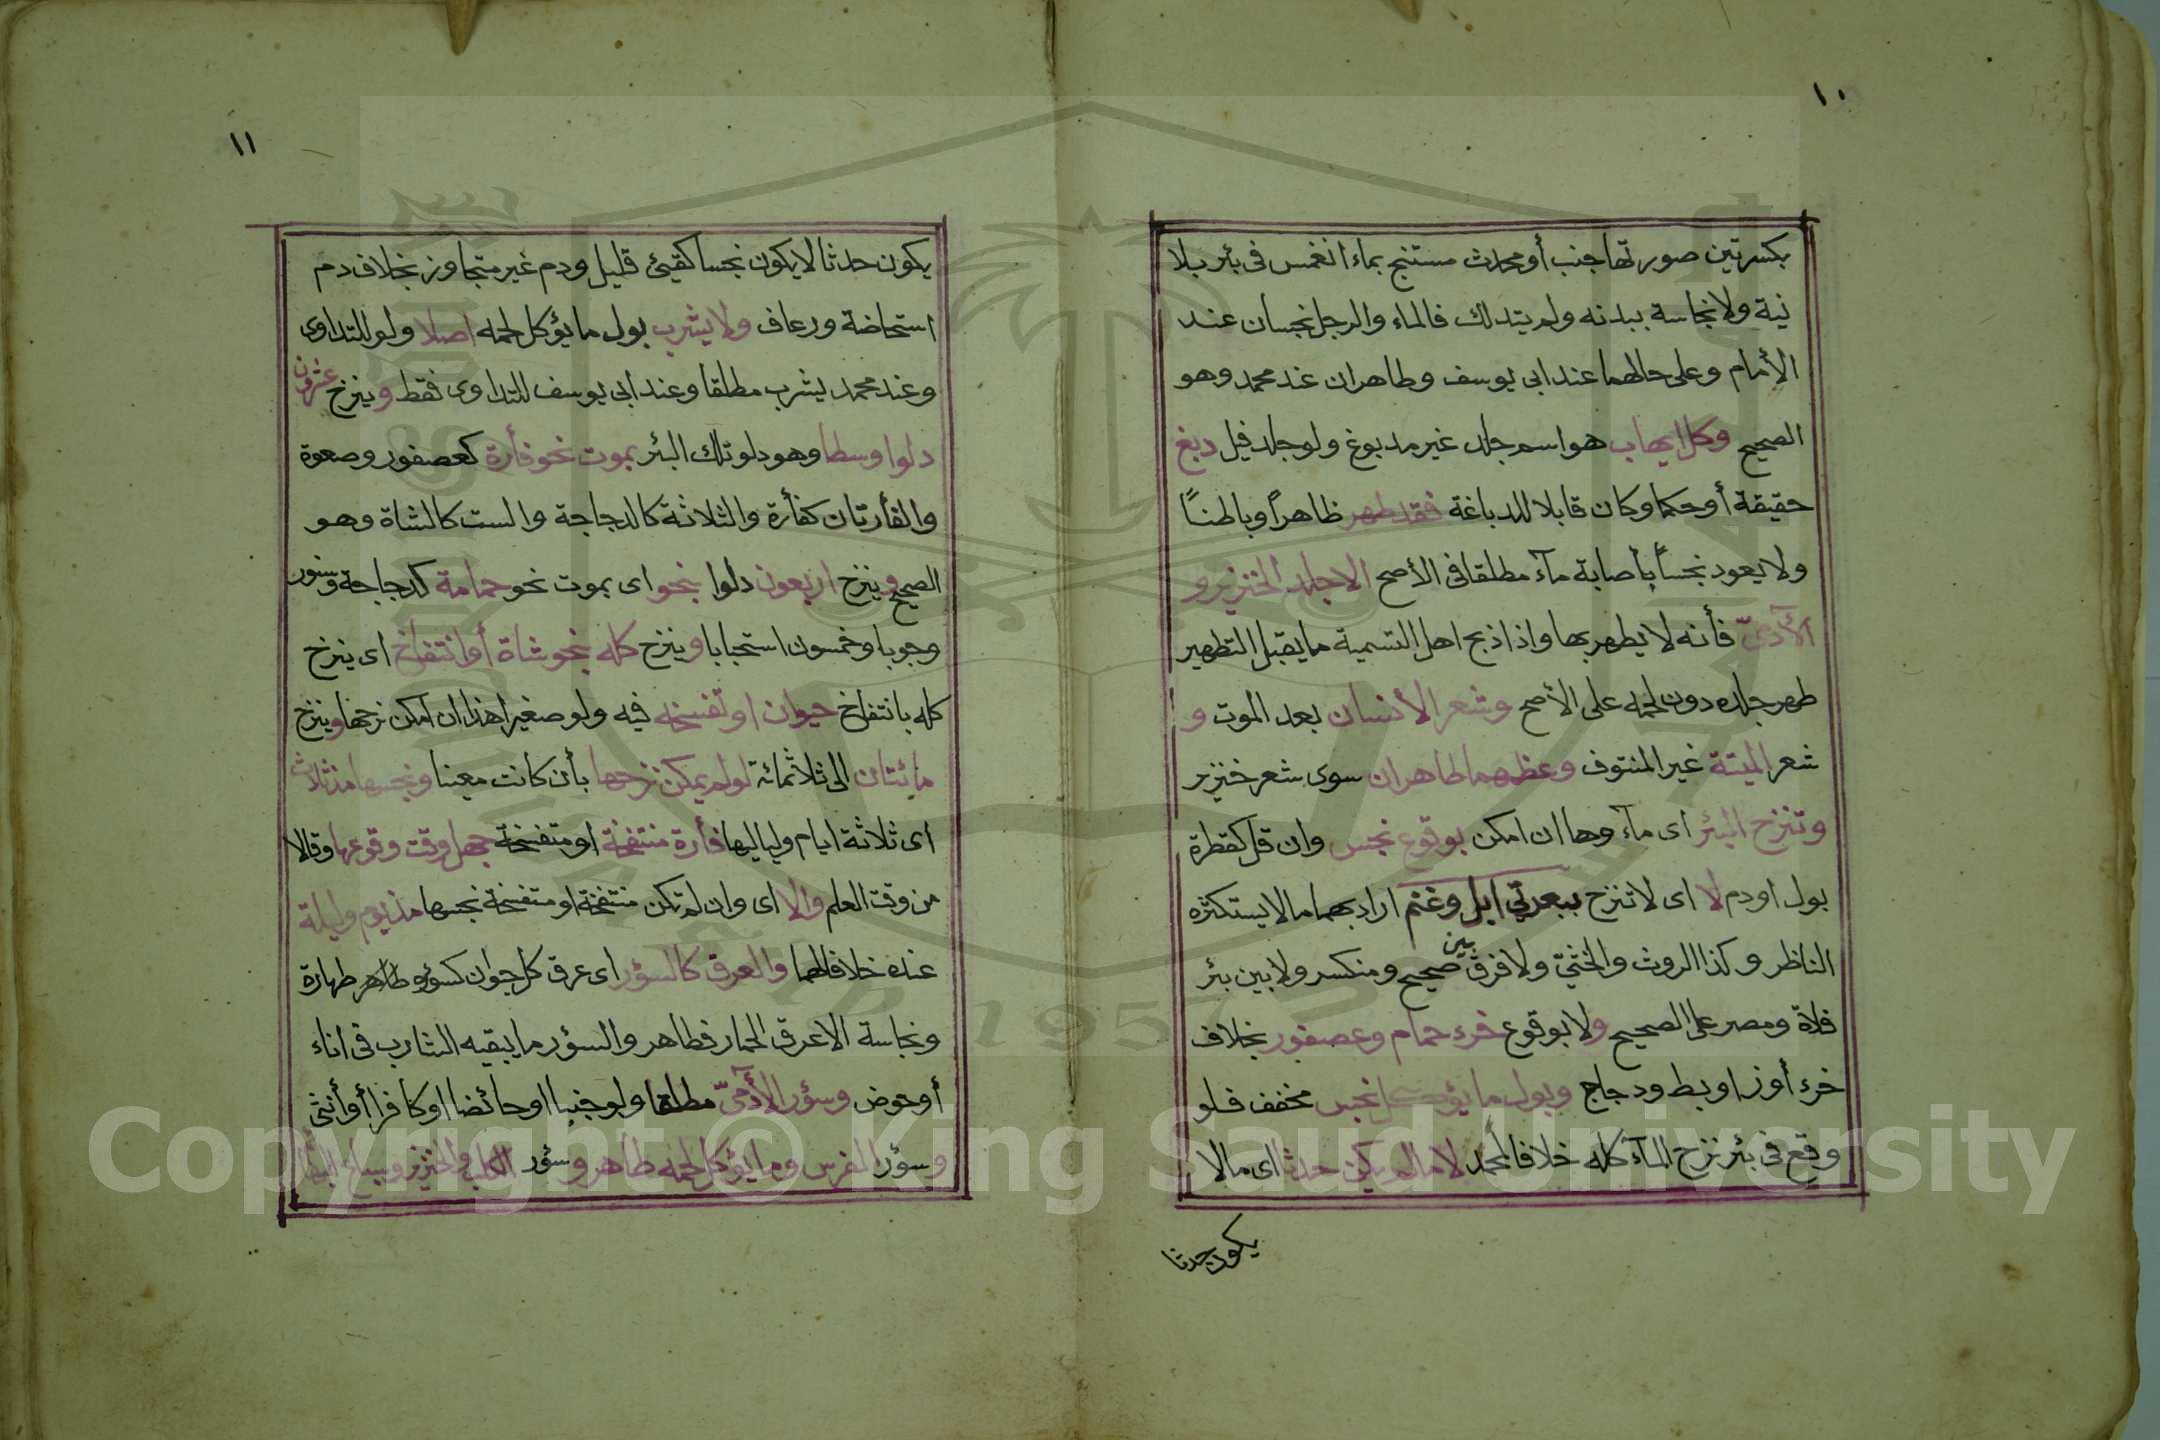 ١٠
بكسرتين صورتها جنب أو محدث مستنج بماء انغمس فى بئر بلا
نية ولا نجاسة ببدنه ولم يتدلك فالماء والرجل نجسان عند
الأمام وعلى حالهما عند ابى يوسف وطاهران عند محمد وهو
الصحيح وكل ايهاب هو اسم جلد غير مدبوغ ولو جلد فيل دبغ
حقيقة أو حكما وكان قابلا للدباغة فقد طهر ظاهرًا وباطنًا
ولا يعود نجساً بأصابة مآء مطلقا فى الأصح الا جلد الخنزير و
الآدمىّ فأنه لا يطهر بها واذا ذبح اهل التسمية ما يقبل التطهير
طهر جلده دون لحمه على الأصح وشعر الأنسان بعد الموت و
شعر الميتة غير المنتوف وعظمهما طاهران سوى شعر خنزير
وتنزح البئر اى مآء وها ان امكن بوقوع نجس وان قل كقطرة
بول او دم لا اى لا تنزح ببعرتي ابل وغنم اراد بهما ما لا يستكثره
الناظر وكذا الروث والخثيّ ولا فرق بين صحيح ومنكسر ولا بين بئر
فلاة ومصر على الصحيح ولا بوقوع خرء حمام وعصفور بخلاف
خرء أوز او بط ودجاج وبول ما يؤكل نجس مخفف فلو
وقع فى بئر نزح المآء كله خلافا لمحمد لا ما لم يكن حدثا اى ما لا
يكون حدثا
١١
يكون حدثا لا يكون نجسا كقيئ قليل ودم غير متجاوز بخلاف دم
استحاضة ورعاف ولا يشرب بول ما يؤكل لحمه اصلا ولو للتداوى
وعند محمد يشرب مطلقا وعند ابى يوسف للتداوى فقط وينزح عشرون
دلوا وسطا وهو دلو تلك البئر بموت نحو فأرة كعصفور وصعوة
والفأرتان كفأرة والثلاثة كالدجاجة والست كالشاة وهو
الصحيح وينزح اربعون دلوا بنحو اى بموت نحو حمامة كدجاجة وسنور
وجوبا وخمسون استحبابا وينزح كله بنحو شاة أو انتفاخ اى ينزح
كله بانتفاخ حيوان او تفسخه فيه ولو صغيرا هذا ان امكن نزحها وينزح
مايئتان الى ثلاثمائة لو لم يمكن نزحها بأن كانت معينا ونجسها مذ ثلاث
اى ثلاثة ايام ولياليها فأرة منتفخة او متفسخة جهل وقت وقوعها وقالا
من وقت العلم والا اى وان لم تكن منتفخة او متفسخة نجسها مذ يوم وليلة
عنده خلافا لهما والعرق كالسؤر اى عرق كل حيوان كسؤره طاهر طهارة
ونجاسة الا عرق الحمار فطاهر والسؤر ما يبقيه الشارب فى اناء
أو حوض وسؤر الآدمىّ مطلقا ولو جنبا او حائضا او كافرا أو أنثى
وسؤر الفرس وما يؤكل لحمه طاهر وسؤر الكلب والخنزير وسباع البهائم
Copyright © King Saud University
1957